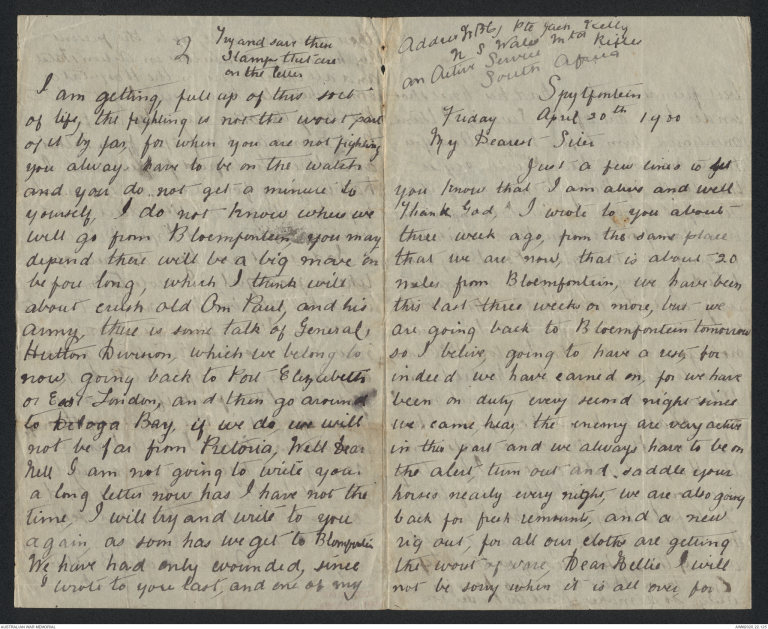 Address Pte Jack Kelly
N S Wales Mtd Rifles
on Active Service
South Africa
Spytfontein
Friday April 20th 1900
My Dearest Sister
Just a few lines to let
you know that I am alive and well
Thank God, I wrote to you about
three week ago, from the same place
that we are now, that is about 20
miles from Bloemfontein, we have been
this last three weeks or more, but we
are going back to Bloemfontein tomorrow
so I belive, going to have a rest, for
indeed we have earned on, for we have
been on duty every second night since
we came hear, the enemy are very active
in this part and we always have to be on
the alert, turn out and saddle your
horses nearly every night, we are also going
back for fresh remounts, and a new
rig out, for all our cloths are getting
the worst of ware, Dear Nellie I will
not be sorry when it is all over for
2
Try and save then
Stamps that are
on the letter
I am getting, full up of this sort
of life, the fighting is not the worst part
of it by far, for when you are not fighting
you always have to be on the watch
and you do not get a minute to
yourself, I do not know where we
will go from Bloemfontein you may
depend there will be a big move on
before long, which I think will
about crush old Om Paul, and his
army, there is some talk of General,
Hutton Division, which we belong to
now going back to Port Elizabeth
or East London, and then go around
to Deloga Bay, if we do we will
not be far from Pretoria, Well Dear
Nell I am not going to write you
a long letter now has I have not the
time, I will try and write to you
again, as soon has we get to Blomfontein
We have had only wounded, since
I wrote to you last, and one of my
AUSTRALIAN WAR MEMORIAL